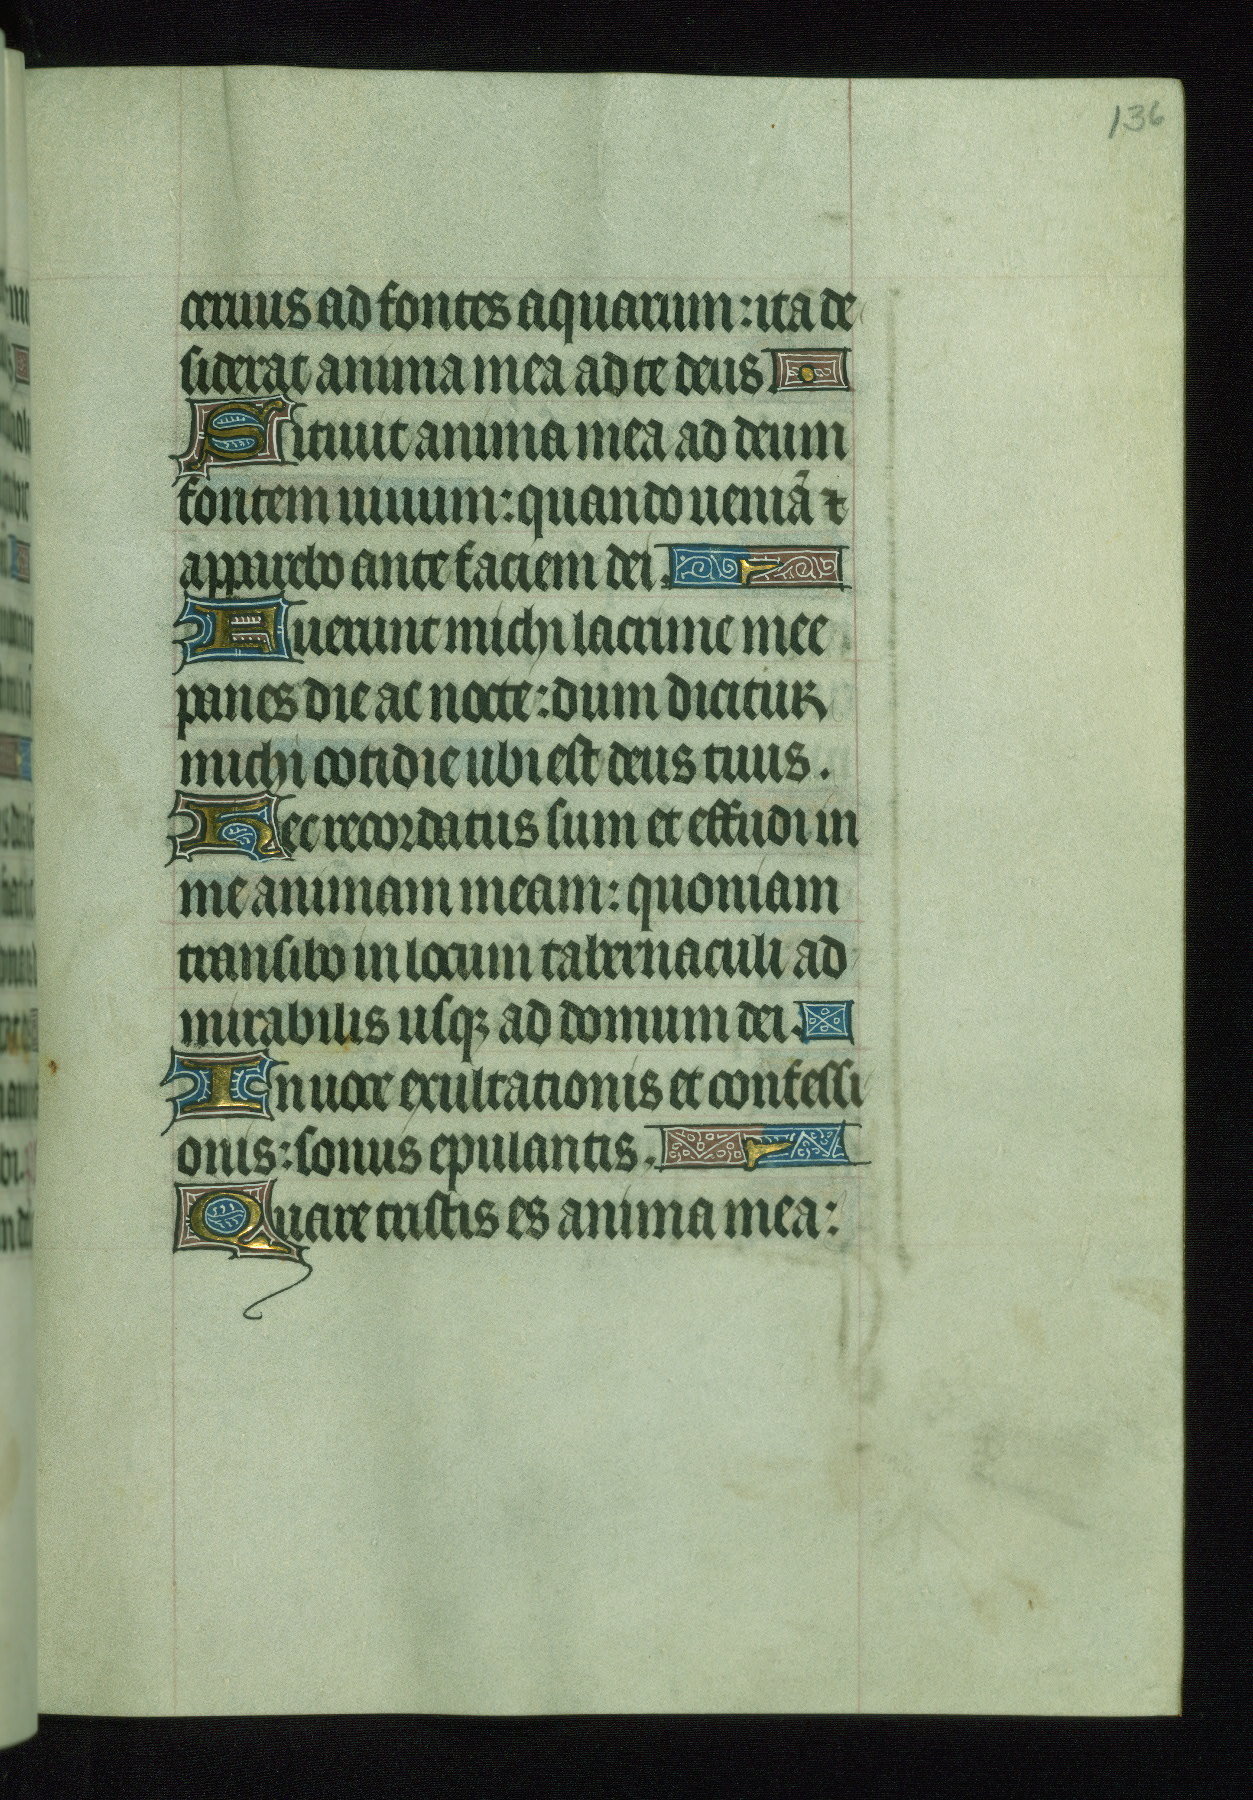 136
ceruus ad fontes aquarum: ita de
siderat anima mea ad te deus
Sitiuit anima mea ad deum
fontem uiuum: quando ueniā ⁊
apparebo ante faciem dei.
Fuerunt michi lacrime mee
panes die ac nocte: dum dicitur
michi cotidie ubi est deus tuus.
Hec recordatus sum et effudi in
me animam meam: quoniam
transibo in locum tabernaculi ad
mirabilis usqꝫ ad domum dei.
In uoce exultationis et confessi
onis: sonus epulantis.
Quare tristis es anima mea: